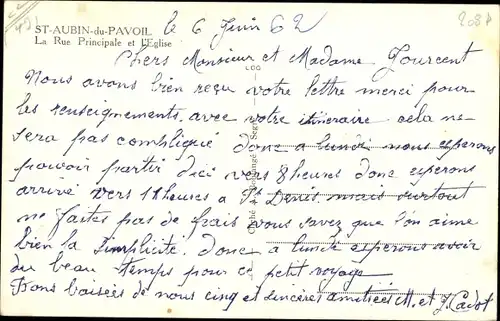 ST-AUBIN-du-PAVOIL le 6 Juin 62
La Rue Principale et l'Eglise
Chers Monsieur et Madame Fourcent
Nous avons bien reçu votre lettre merci pour
les renseignements avec votre itinéraire cela ne
sera pas compliqué donc a lundi nous esperons
pouvoir partir d'ici vers 8 heures donc esperons
arrivé vers 11 heures a St Denis mais surtout
ne faites pas de frais vous savez que l'on aime
bien la simplicité. donc a lundi esperons avoir
du beau temps pour ce petit voyage
Bons baisées de nous cinq et sincères amitiées M. et J. Cadot